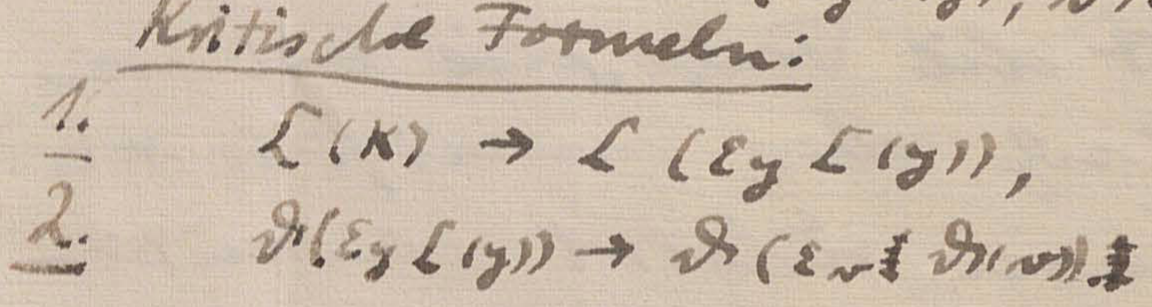 Kritische Formeln:
1. ℒ(κ) → ℒ(εy ℒ(y)),
2. ϑ(εy ℒ(y)) → ϑ(εv ϑ(v))